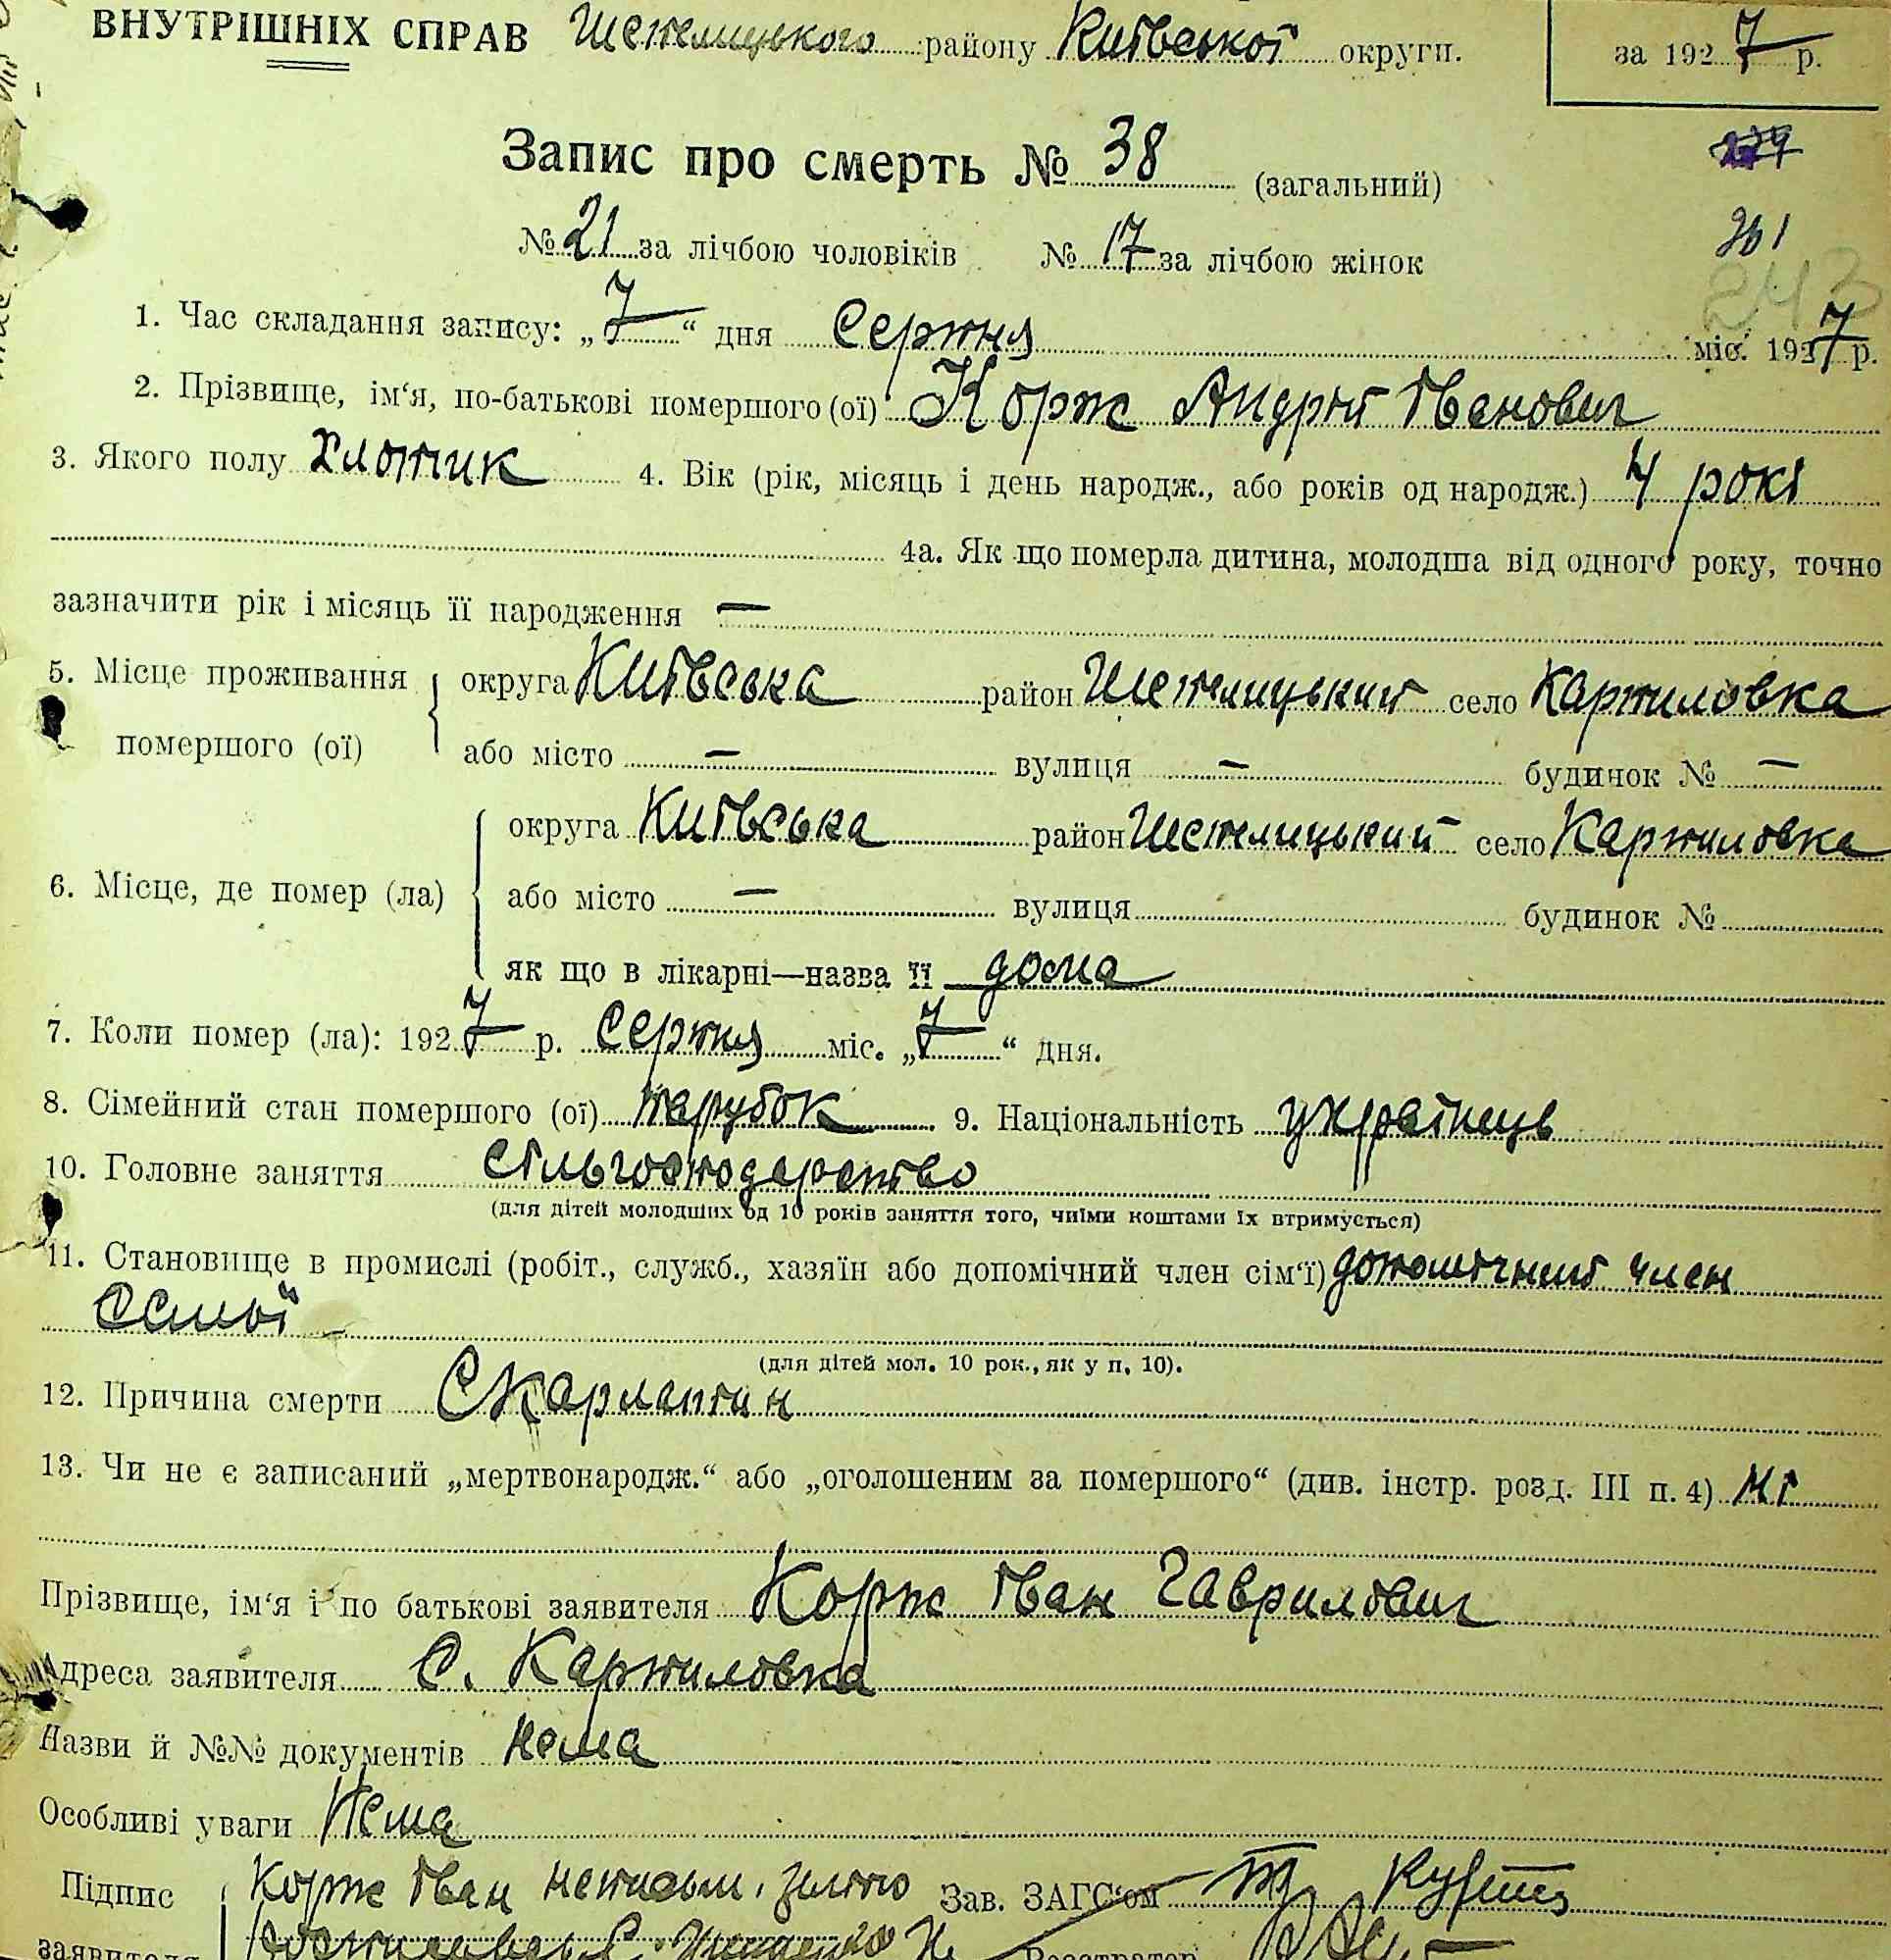 ВНУТРІШНІХ СПРАВ Шепелицького району Київської округи. за 1927 р.
Запис про смерть № 38 (загальний)
№ 21 за лічбою чоловіків № 17 за лічбою жінок
261
243
1. Час складання запису: „7“ дня Серпня міс. 1927 р.
2. Прізвище, ім‘я, по-батькові помершого (ої) Корж Андрій Іванович
3. Якого полу Хлопчик 4. Вік (рік, місяць і день народж., або років од народж.) 4 рокі
4а. Як що померла дитина, молодша від одного року, точно
зазначити рік і місяць її народження —
5. Місце проживання помершого (ої) округа Київська район Шепелицький село Карпиловка
або місто — вулиця — будинок № —
6. Місце, де помер (ла) округа Київська район Шепелицький село Карпиловка
або місто — вулиця будинок №
як що в лікарні—назва її дома
7. Коли помер (ла): 1927 р. Серпня міс. „7“ дня.
8. Сімейний стан помершого (ої) парубок 9. Національність українець
10. Головне заняття сільгосподарство
(для дітей молодших од 10 років заняття того, чиїми коштами їх втримується)
11. Становище в промислі (робіт., служб., хазяїн або допомічний член сім‘ї) допомічний член
семьї
(для дітей мол. 10 рок., як у п. 10).
12. Причина смерти Скарлатин
13. Чи не є записаний „мертвонародж.“ або „оголошеним за помершого“ (див. інстр. розд. III п. 4) ні
Прізвище, ім‘я і по батькові заявителя Корж Іван Гаврилович
Адреса заявителя С. Карпиловка
Назви й №№ документів нема
Особливі уваги Нема
Підпис Корж Іван неписьм. Зав. ЗАГС‘ом
заявителя Реєстратор